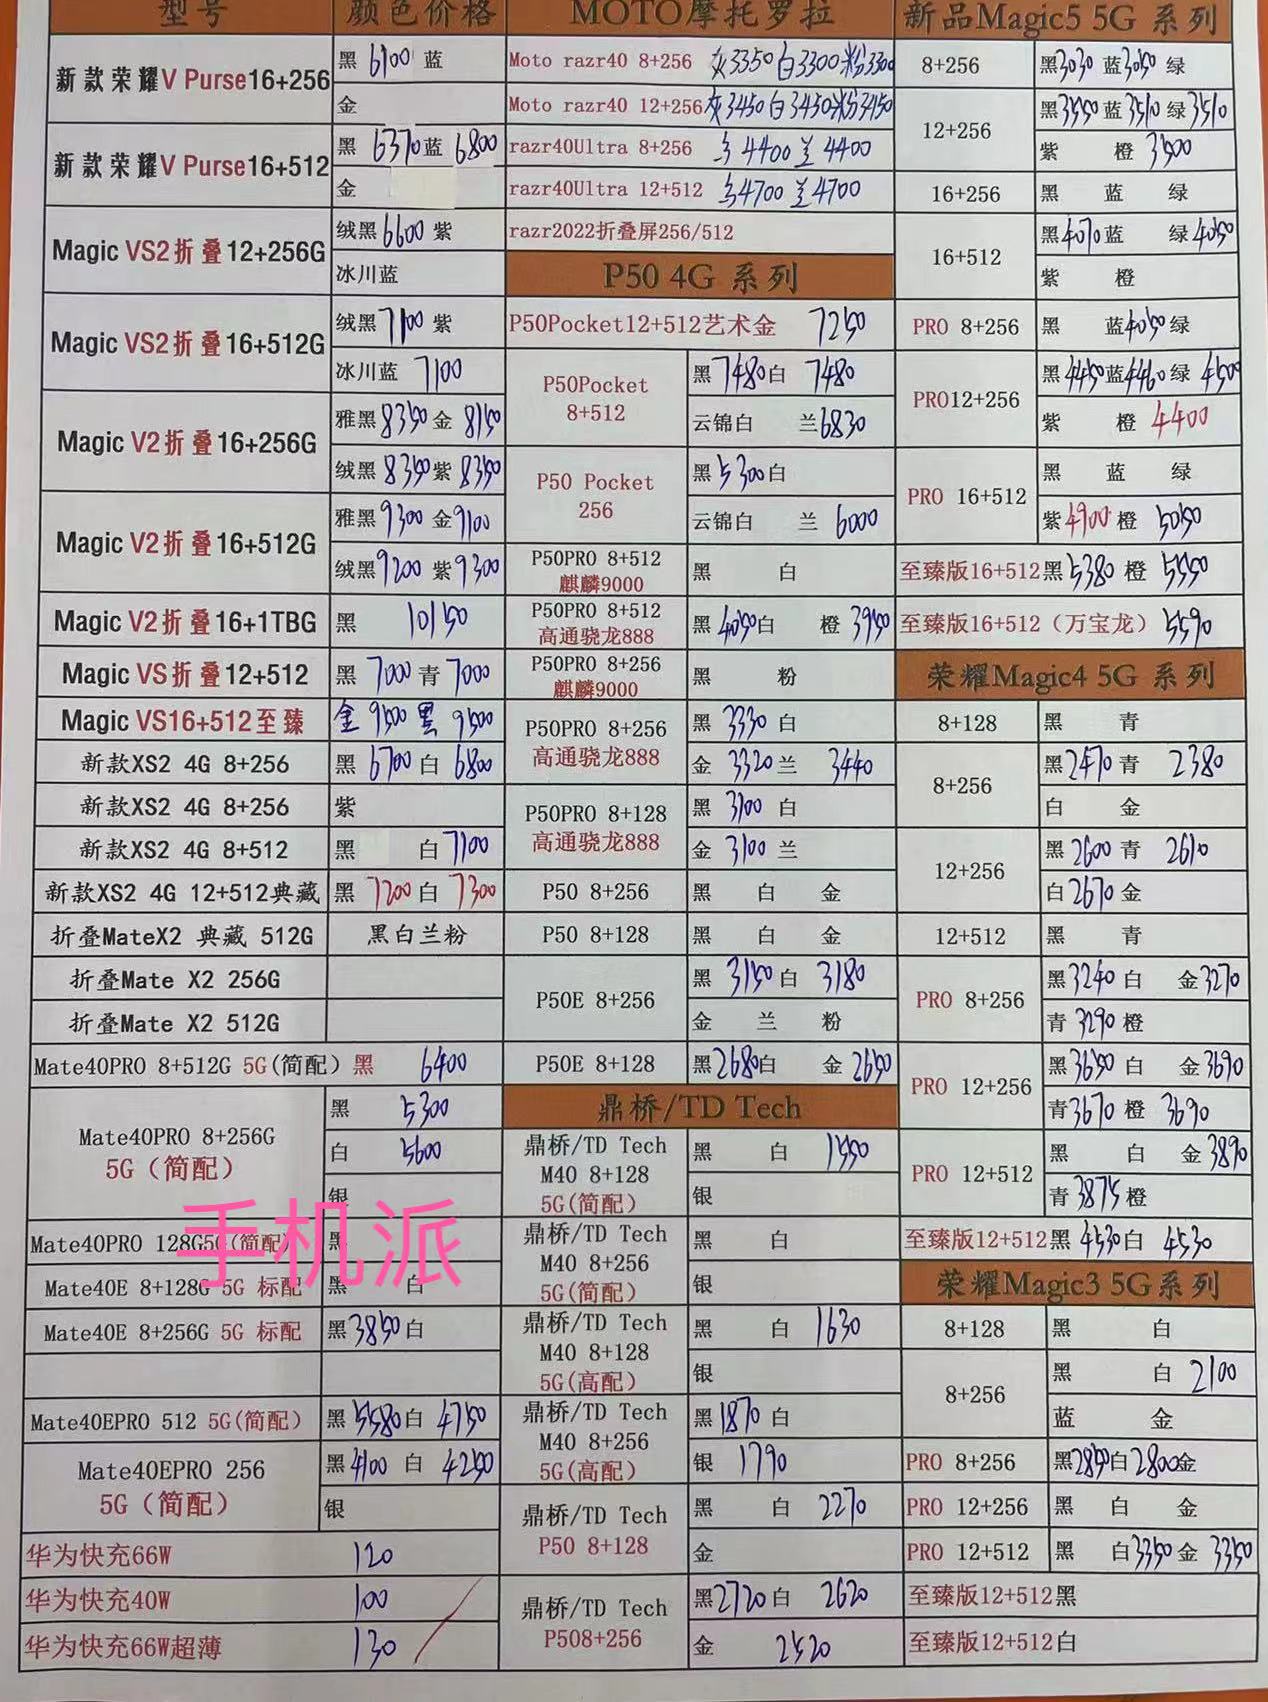 型号 颜色价格
新款荣耀V Purse16+256 黑 6100 蓝
金
新款荣耀V Purse16+512 黑 6370 蓝 6800
金
Magic VS2折叠12+256G 绒黑 6600 紫
冰川蓝
Magic VS2折叠16+512G 绒黑 7100 紫
冰川蓝 7100
Magic V2折叠16+256G 雅黑 8350 金 8150
绒黑 8350 紫 8350
Magic V2折叠16+512G 雅黑 9300 金 9100
绒黑 9200 紫 9300
Magic V2折叠16+1TBG 黑 10150
Magic VS折叠12+512 黑 7000 青 7000
Magic VS16+512至臻 金 9500 黑 9500
新款XS2 4G 8+256 黑 6700 白 6800
新款XS2 4G 8+256 紫
新款XS2 4G 8+512 黑 白 7100
新款XS2 4G 12+512典藏 黑 7200 白 7300
折叠MateX2 典藏 512G 黑白兰粉
折叠Mate X2 256G
折叠Mate X2 512G
Mate40PRO 8+512G 5G(简配) 黑 6400
Mate40PRO 8+256G 5G（简配） 黑 5300
白 5600
银
Mate40PRO 128G5G(简配) 黑
Mate40E 8+128G 5G 标配 黑 白
Mate40E 8+256G 5G 标配 黑 3850 白
Mate40EPRO 512 5G(简配) 黑 5580 白 4750
Mate40EPRO 256 5G（简配） 黑 4100 白 4250
银
华为快充66W 120
华为快充40W 100
华为快充66W超薄 130
手机派
MOTO摩托罗拉
Moto razr40 8+256 灰3350 白3300 粉3300
Moto razr40 12+256 灰3450 白3450 粉3450
razr40Ultra 8+256 4400 兰 4400
razr40Ultra 12+512 4700 兰 4700
razr2022折叠屏256/512
P50 4G 系列
P50Pocket12+512艺术金 7250
P50Pocket 8+512 黑 7480 白 7480
云锦白 兰 6830
P50 Pocket 256 黑 5300 白
云锦白 兰 6000
P50PRO 8+512 麒麟9000 黑 白
P50PRO 8+512 高通骁龙888 黑 4050 白 橙 3950
P50PRO 8+256 麒麟9000 黑 粉
P50PRO 8+256 高通骁龙888 黑 3330 白
金 3320 兰 3440
P50PRO 8+128 高通骁龙888 黑 3100 白
金 3100 兰
P50 8+256 黑 白 金
P50 8+128 黑 白 金
P50E 8+256 黑 3150 白 3180
金 兰 粉
P50E 8+128 黑 2680 白 金 2650
鼎桥/TD Tech
鼎桥/TD Tech M40 8+128 5G(简配) 黑 白 1550
银
鼎桥/TD Tech M40 8+256 5G(简配) 黑 白
银
鼎桥/TD Tech M40 8+128 5G(高配) 黑 白 1630
银
鼎桥/TD Tech M40 8+256 5G(高配) 黑 1870 白
银 1790
鼎桥/TD Tech P50 8+128 黑 白 2270
金
鼎桥/TD Tech P508+256 黑 2720 白 2620
金 2520
新品Magic5 5G 系列
8+256 黑 3030 蓝 3050 绿
12+256 黑 3550 蓝 3510 绿 3510
紫 橙 3500
16+256 黑 蓝 绿
16+512 黑 4070 蓝 绿 4050
紫 橙
PRO 8+256 黑 蓝 4050 绿
PRO12+256 黑 4450 蓝 4460 绿 4500
紫 橙 4400
PRO 16+512 黑 蓝 绿
紫 4900 橙 5050
至臻版16+512 黑 5380 橙 5550
至臻版16+512（万宝龙） 5590
荣耀Magic4 5G 系列
8+128 黑 青
8+256 黑 2470 青 2380
白 金
12+256 黑 2600 青 2610
白 2670 金
12+512 黑 青
PRO 8+256 黑 3240 白 金 3270
青 3290 橙
PRO 12+256 黑 3650 白 金 3690
青 3670 橙 3690
PRO 12+512 黑 白 金 3890
青 3875 橙
至臻版12+512 黑 4530 白 4530
荣耀Magic3 5G系列
8+128 黑 白
8+256 黑 白 2100
蓝 金
PRO 8+256 黑 2850 白 2800 金
PRO 12+256 黑 白 金
PRO 12+512 黑 白 3350 金 3350
至臻版12+512黑
至臻版12+512白